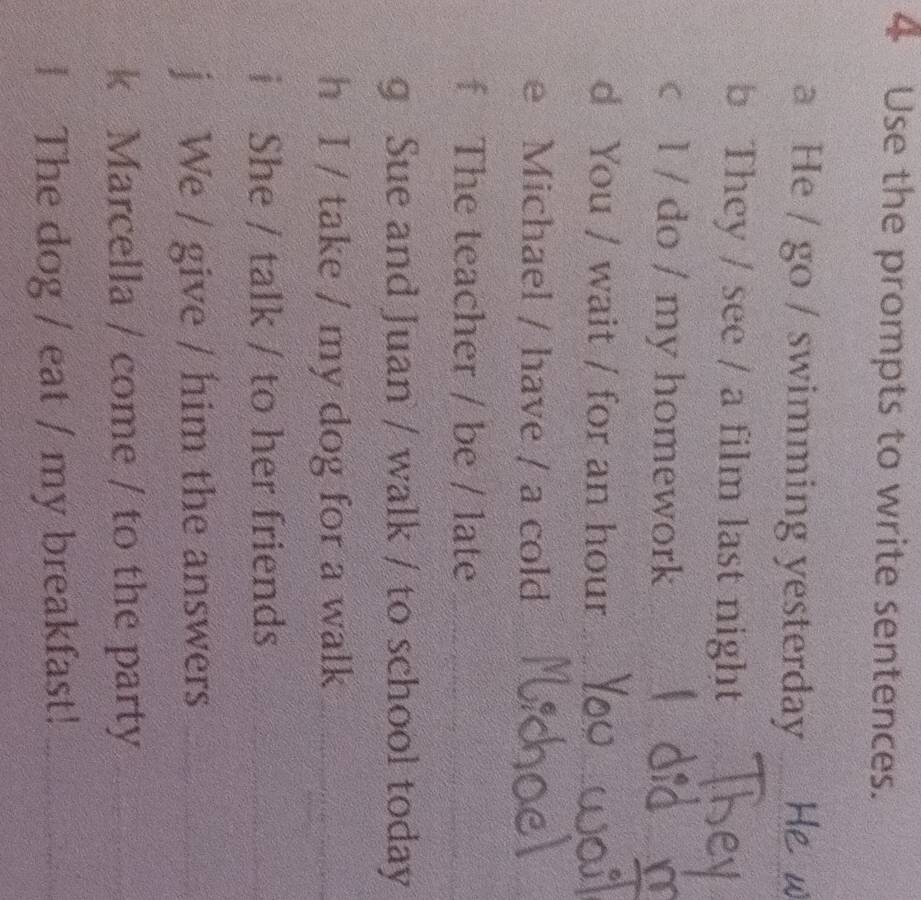 4 Use the prompts to write sentences.
a He / go / swimming yesterday He w
b They / see / a film last night They
c I / do / my homework I did m
d You / wait / for an hour You wait
e Michael / have / a cold Michael
f The teacher / be / late
g Sue and Juan / walk / to school today
h I / take / my dog for a walk
i She / talk / to her friends
j We / give / him the answers
k Marcella / come / to the party
l The dog / eat / my breakfast!